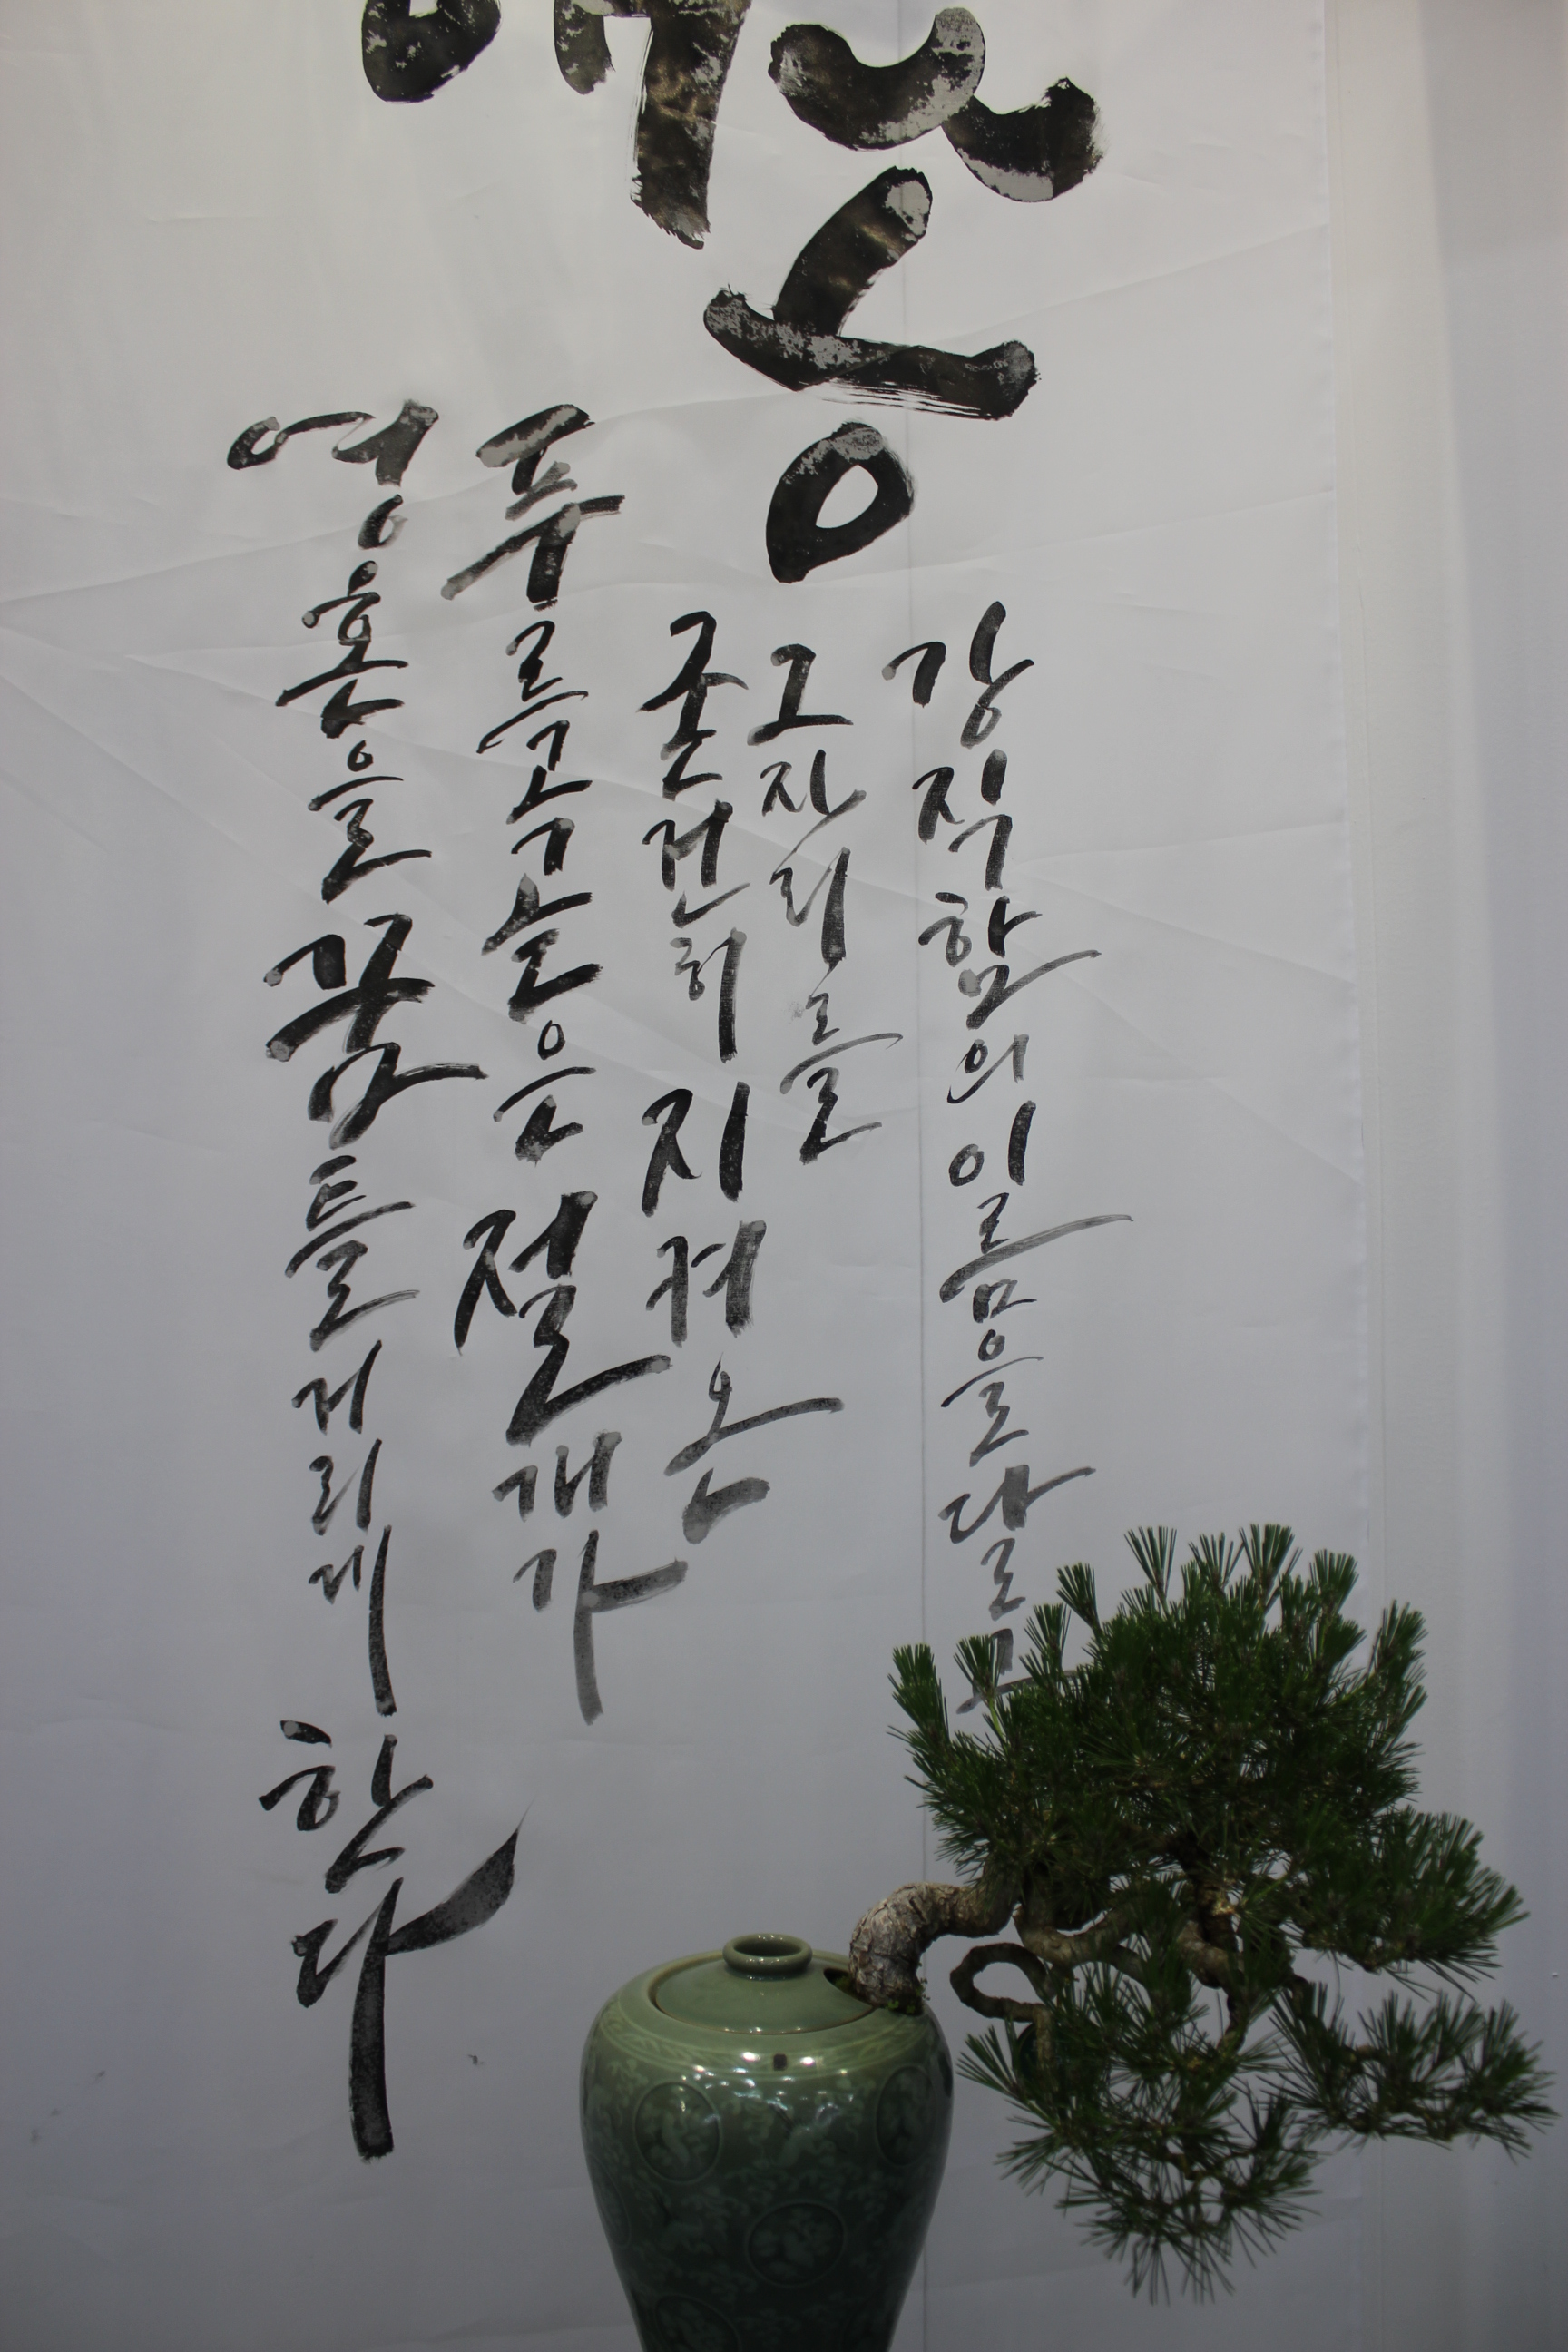 송
강직함의 이름을 달고
그 자리를
굳건히 지켜온
푸르고 곧은 절개가
영혼을 꿈틀거리게 한다